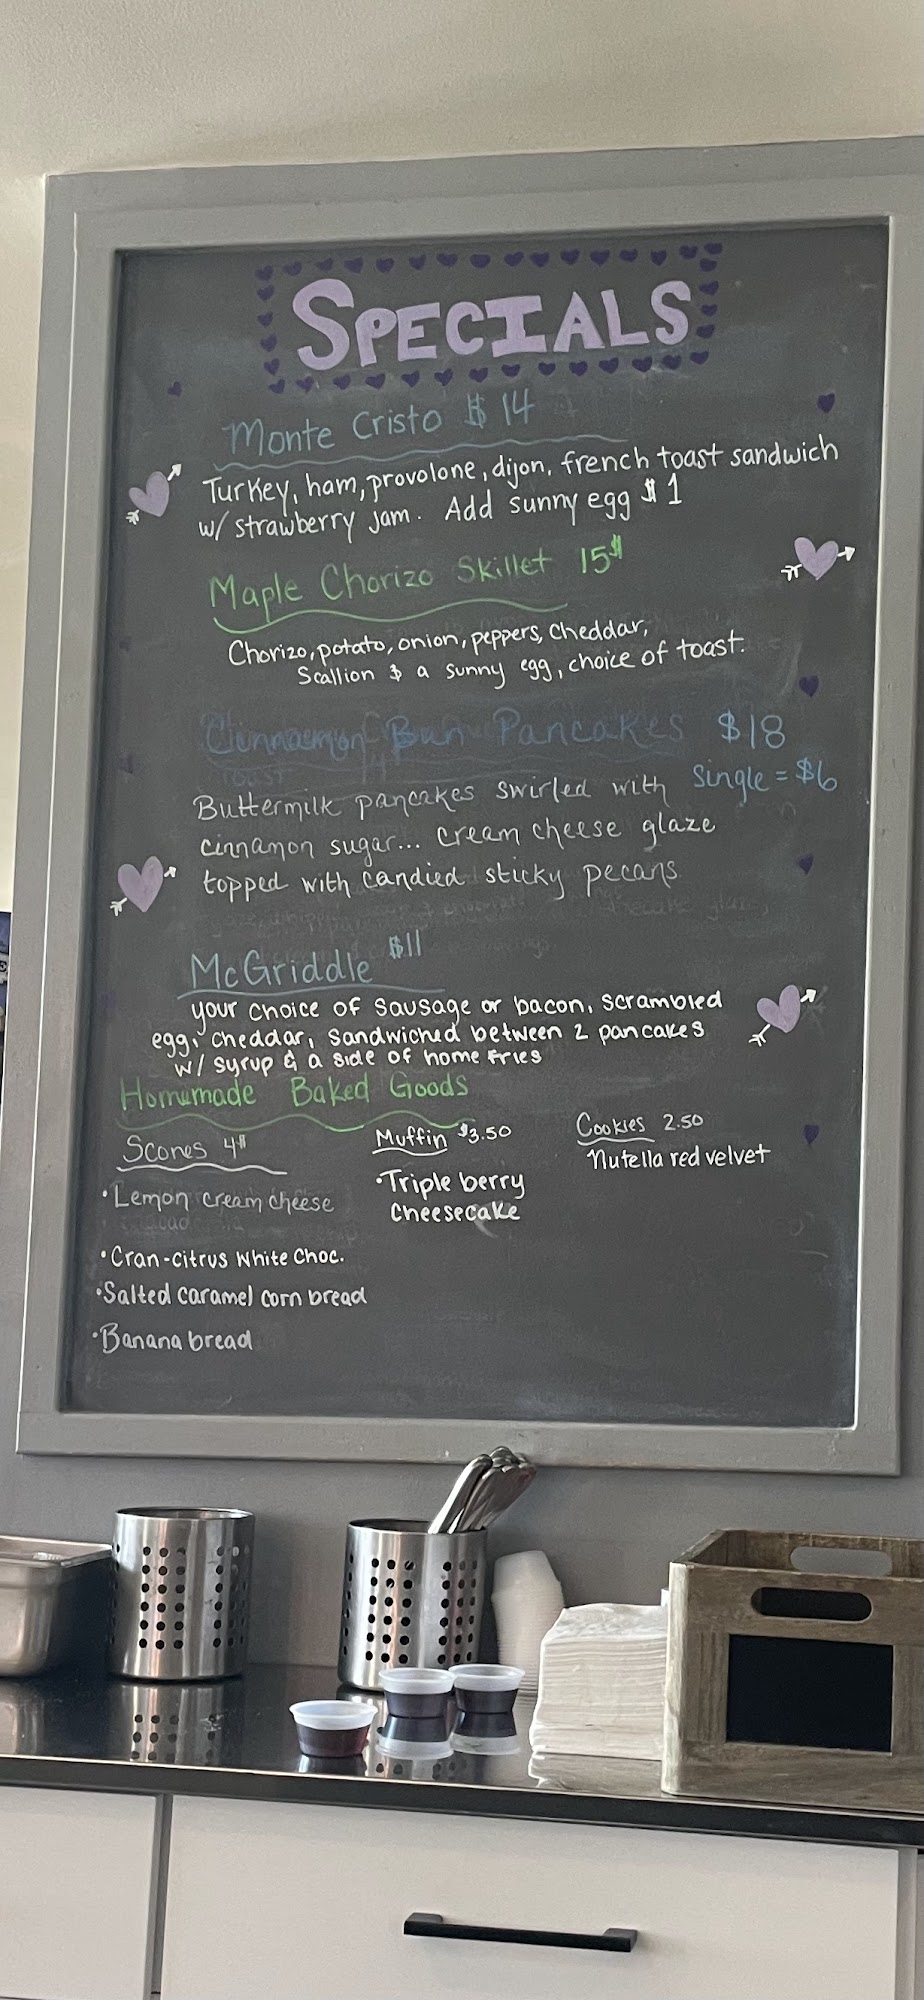 SPECIALS
Monte Cristo $14
Turkey, ham, provolone, dijon, french toast sandwich
w/ strawberry jam. Add sunny egg $1
Maple Chorizo Skillet 15$
Chorizo, potato, onion, peppers, cheddar,
Scallion & a sunny egg, choice of toast.
Cinnamon Bun Pancakes $18
Single = $6
Buttermilk pancakes swirled with
cinnamon sugar... cream cheese glaze
topped with candied sticky pecans
McGriddle $11
your choice of sausage or bacon, scrambled
egg, cheddar, sandwiched between 2 pancakes
w/ syrup & a side of home fries
Homemade Baked Goods
Scones 4$
• Lemon cream cheese
• Cran-citrus White Choc.
• Salted caramel corn bread
• Banana bread
Muffin $3.50
• Triple berry
cheesecake
Cookies 2.50
Nutella red velvet